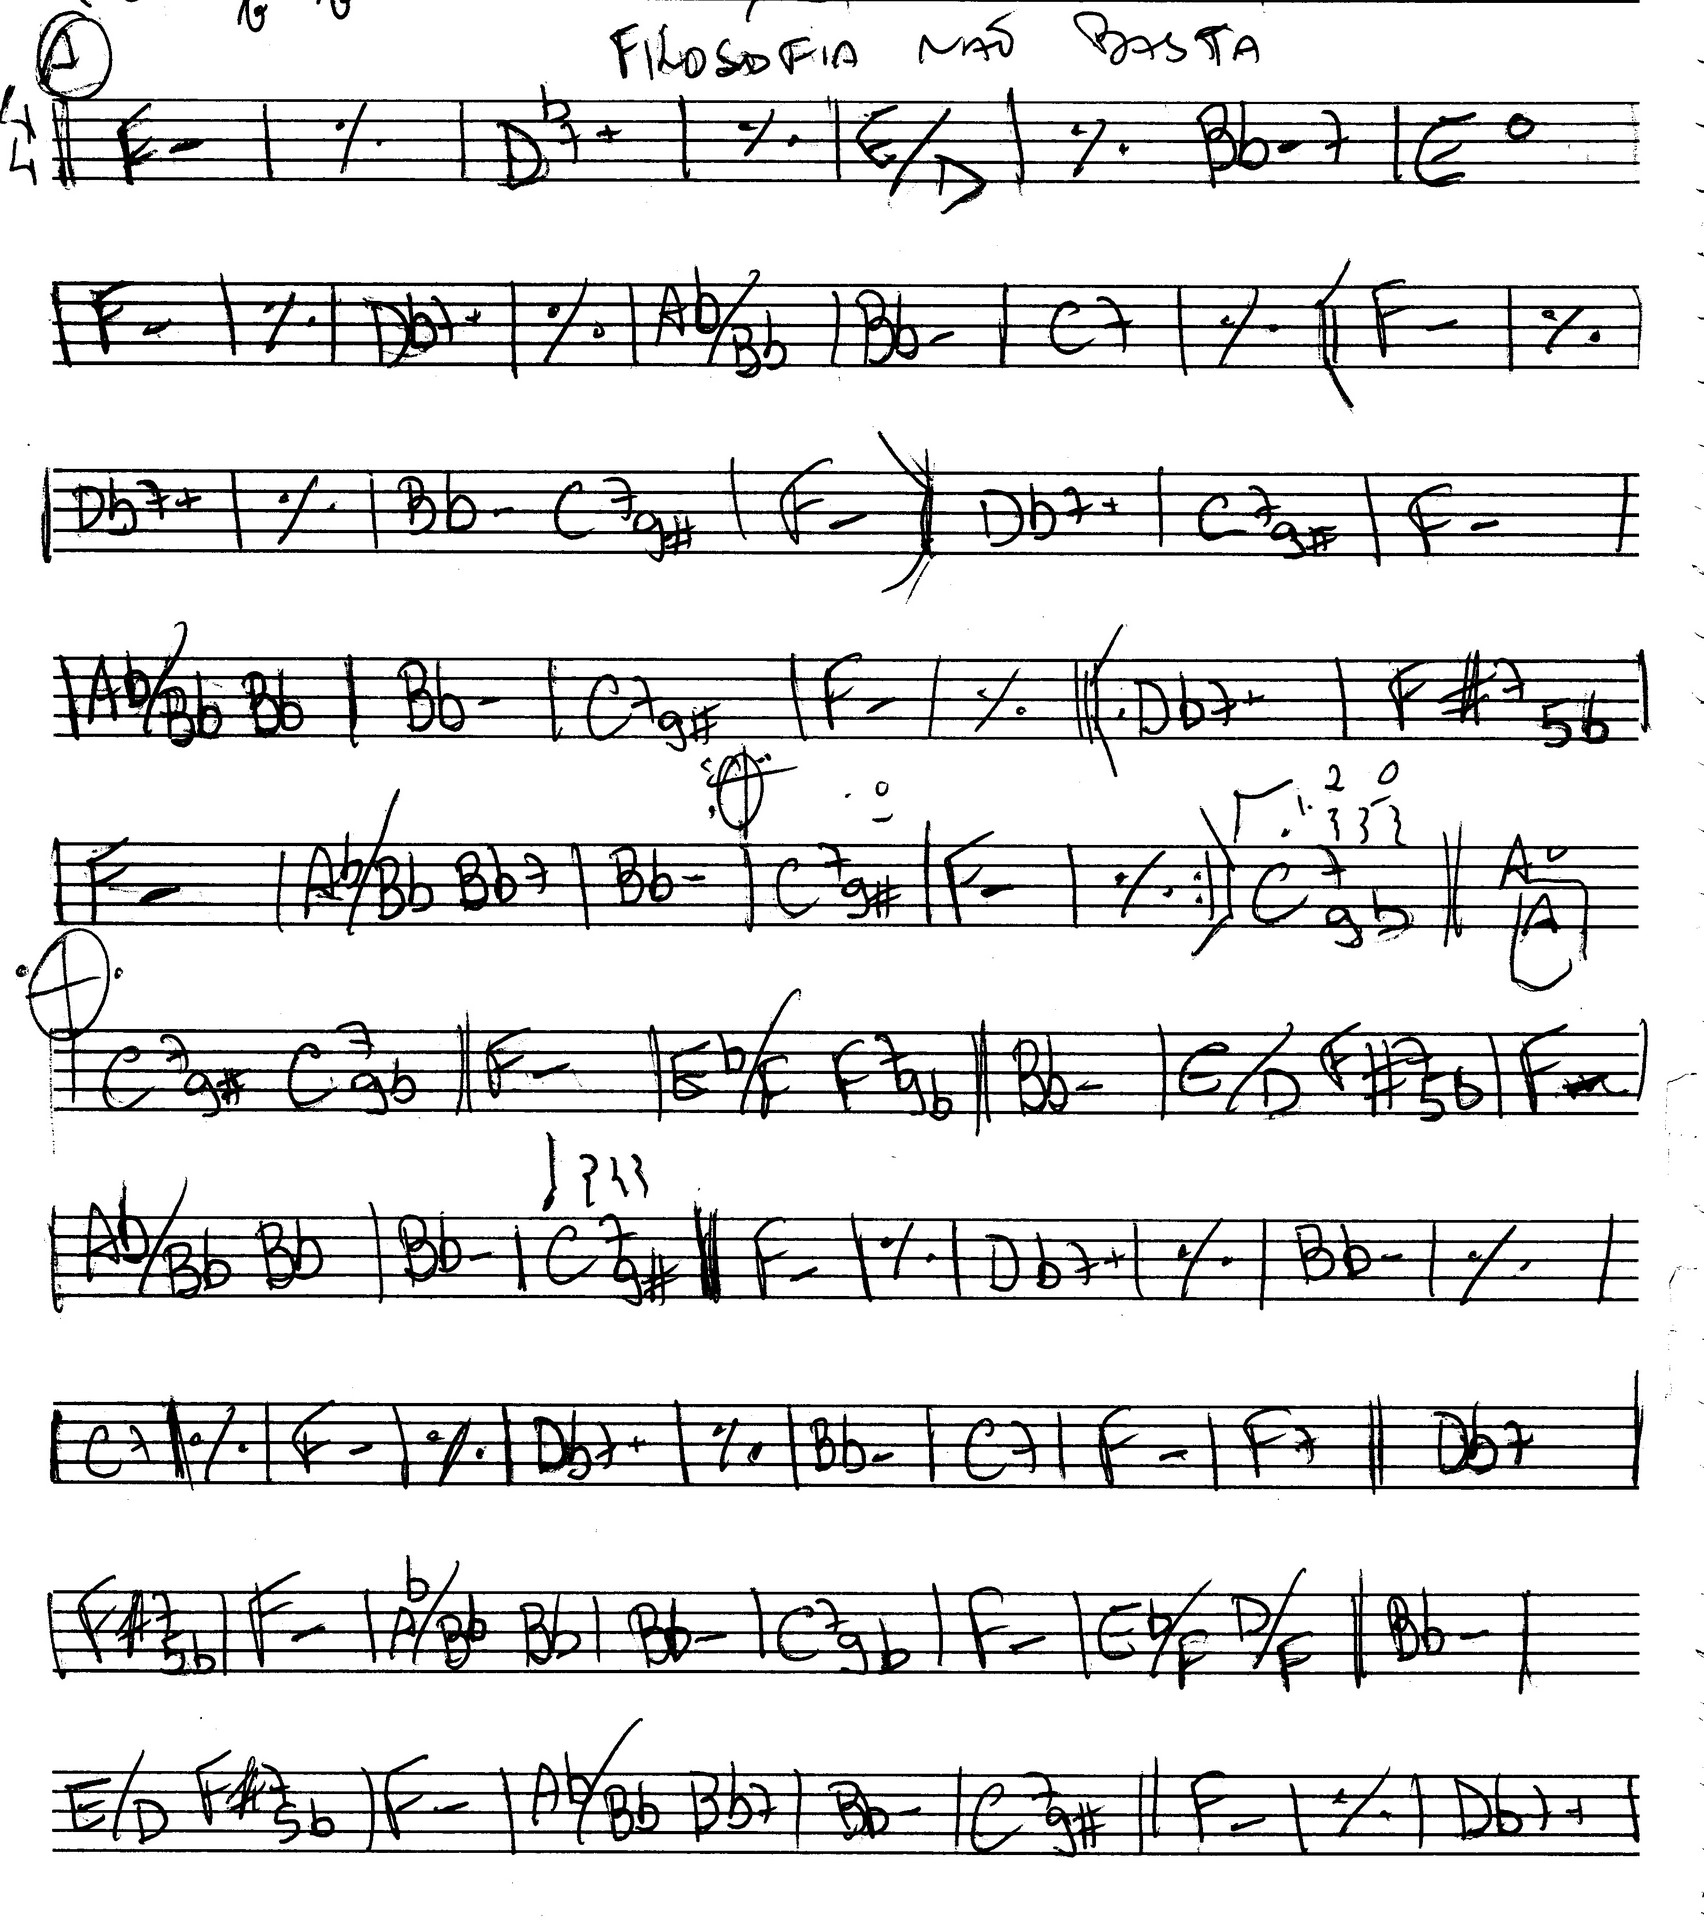 A
FILOSOFIA NÃO BASTA
F- | ٪ | Db7+ | ٪ | E/D | ٪ Bb-7 | E°
F- | ٪ | Db7+ | ٪ | Ab/Bb | Bb- | C7 | ٪ || F- | ٪
Db7+ | ٪ | Bb- C7 9# | F- || Db7+ | C7 9# | F- |
Ab/Bb Bb | Bb- | C7 9# | F- | ٪ ||: Db7+ | F#7 5b |
F- | Ab/Bb Bb7 | Bb- | C7 9# | F- | ٪ :|| C7 9b || Ao A
C7 9# C7 9b || F- | Eb/F F7 9b || Bb- | E/D F#7 5b | F-
Ab/Bb Bb | Bb- | C7 9# || F- | ٪ | Db7+ | ٪ | Bb- | ٪ |
C7 | ٪ | F- | ٪ | Db7+ | ٪ | Bb- | C7 | F- | F7 || Db7 |
F#7 5b | F- | Ab/Bb Bb | Bb- | C7 9b | F- | Eb/F D/F || Bb- |
E/D F#7 5b | F- | Ab/Bb Bb7 | Bb- | C7 9# || F- | ٪ | Db7+ |